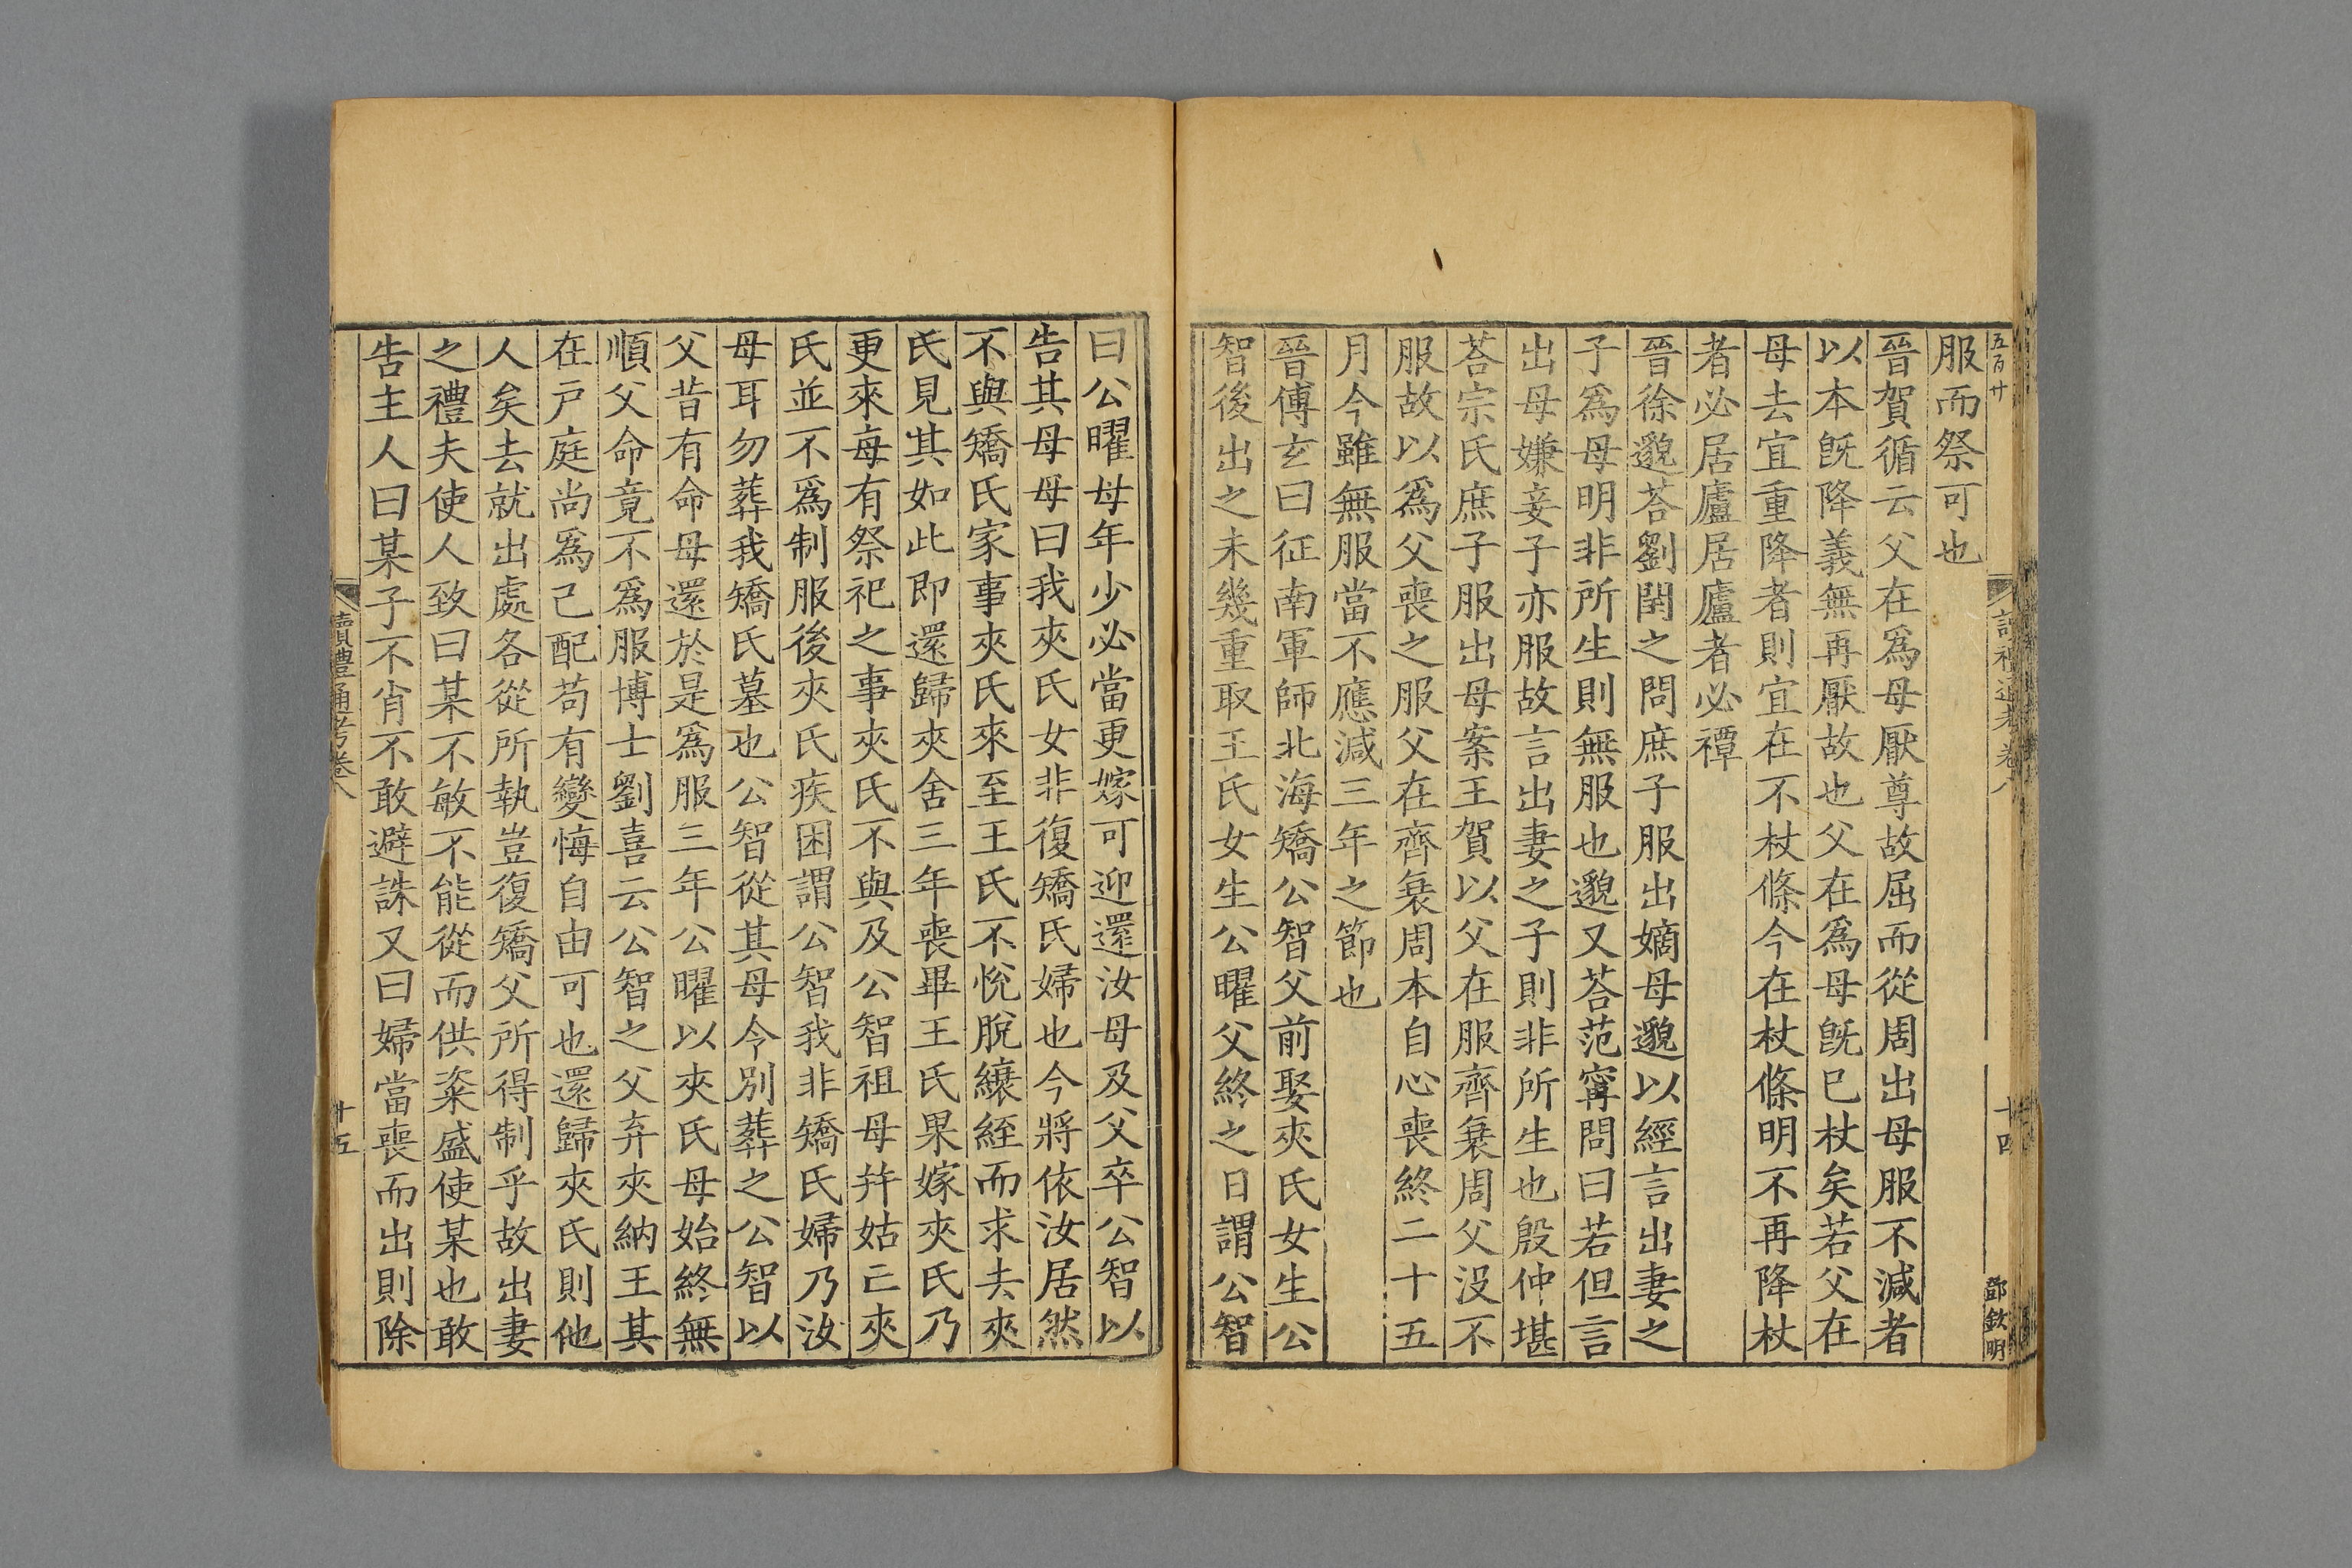 五百廿
讀禮通考卷八
十四
鄧欽明
服而祭可也
晉賀循云父在爲母厭尊故屈而從周出母服不減者
以本旣降義無再厭故也父在爲母旣已杖矣若父在
母去宜重降者則宜在不杖條今在杖條明不再降杖
者必居廬居廬者必禫
晉徐邈荅劉閏之問庶子服出嫡母邈以經言出妻之
子爲母明非所生則無服也邈又荅范甯問曰若但言
出母嫌妾子亦服故言出妻之子則非所生也殷仲堪
荅宗氏庶子服出母案王賀以父在服齊衰周父没不
服故以爲父喪之服父在齊衰周本自心喪終二十五
月今雖無服當不應減三年之節也
晉傅玄曰征南軍師北海矯公智父前娶夾氏女生公
智後出之未幾重取王氏女生公曜父終之日謂公智
曰公曜母年少必當更嫁可迎還汝母及父卒公智以
告其母母曰我夾氏女非復矯氏婦也今將依汝居然
不與矯氏家事夾氏來至王氏不悅脫縗絰而求去夾
氏見其如此即還歸夾舍三年喪畢王氏果嫁夾氏乃
更來每有祭祀之事夾氏不與及公智祖母并姑亡夾
氏並不爲制服後夾氏疾困謂公智我非矯氏婦乃汝
母耳勿葬我矯氏墓也公智從其母令別葬之公智以
父昔有命母還於是爲服三年公曜以夾氏母始終無
順父命竟不爲服博士劉喜云公智之父弃夾納王其
在戸庭尚爲己配苟有變悔自由可也還歸夾氏則他
人矣去就出處各從所執豈復矯父所得制乎故出妻
之禮夫使人致曰某不敏不能從而供粢盛使某也敢
告主人曰某子不肖不敢避誅又曰婦當喪而出則除
讀禮通考卷八
十五